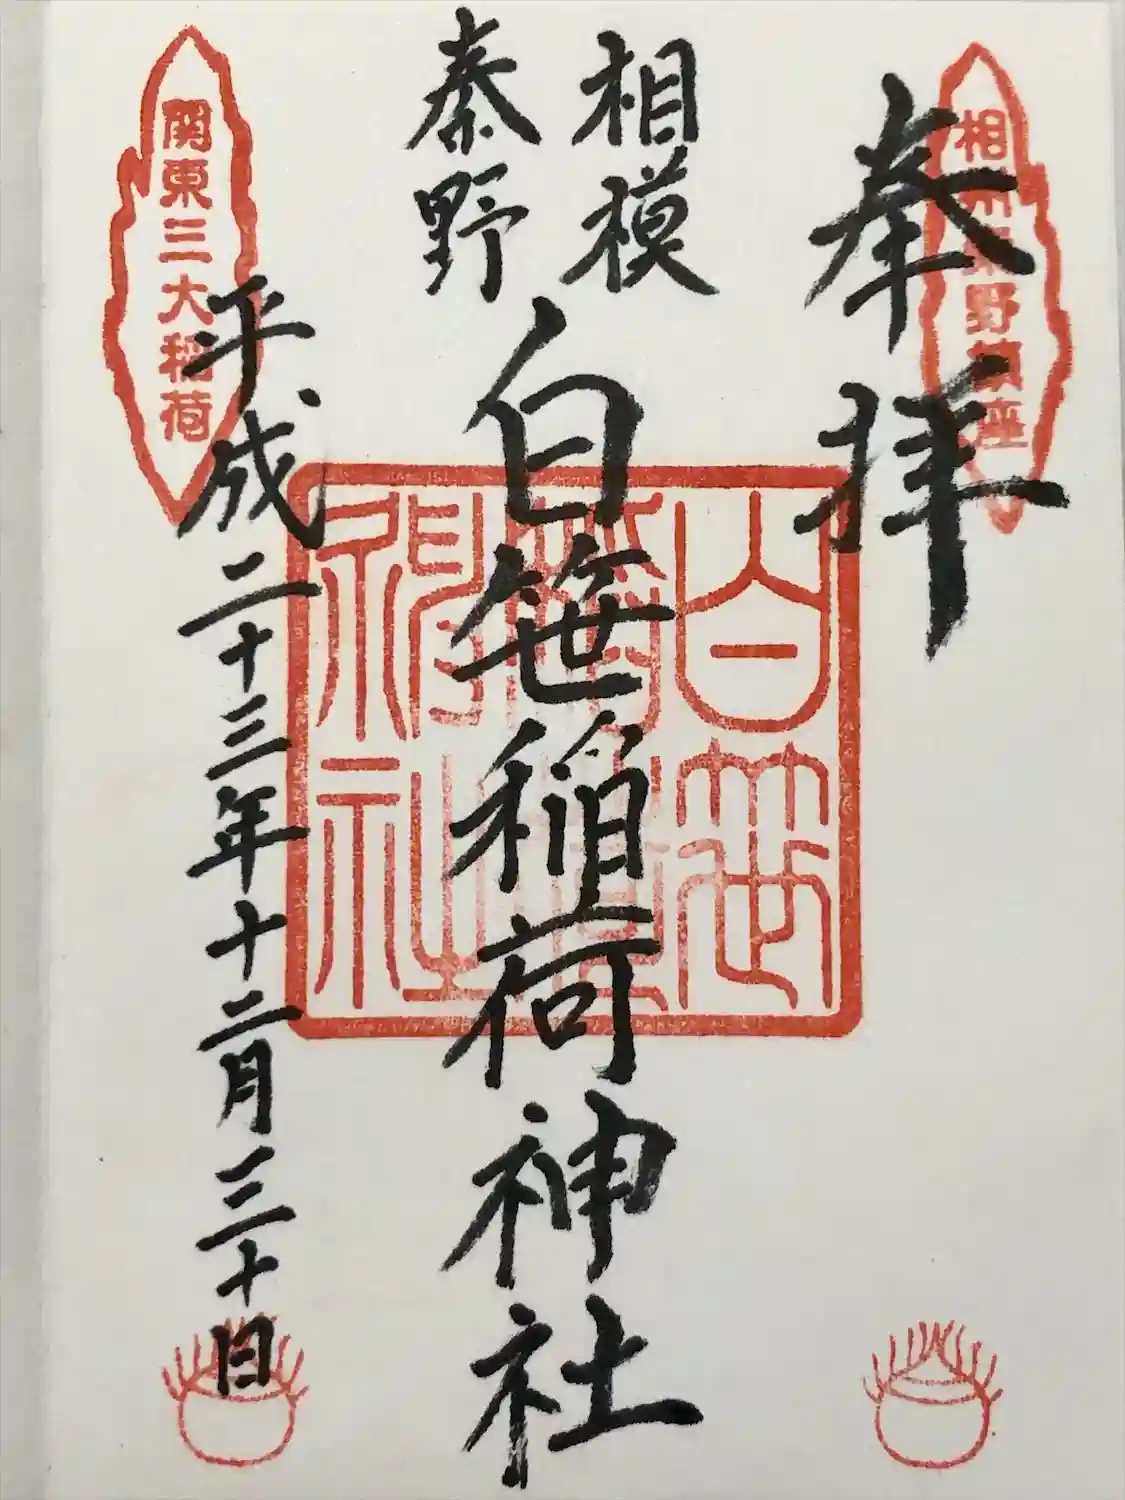 奉拝
相州秦野鎮座
相模
秦野
白笹稲荷神社
白笹
稲荷
神社
関東三大稲荷
平成二十三年十二月三十日